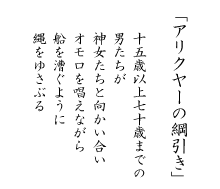 「アリクヤーの綱引き」
十五歳以上七十歳までの
男たちが
神女たちと向かい合い
オモロを唱えながら
船を漕ぐように
縄をゆさぶる